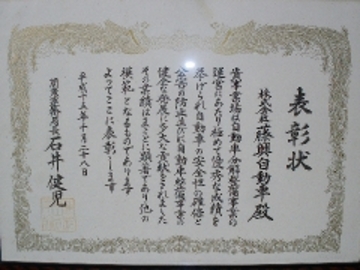 表彰状
株式会社藤興自動車殿
貴事業場は自動車分解整備事業の
運営にあたり極めて優秀な成績を
挙げられ自動車の安全性の確保と
公害の防止並びに自動車整備事業の
健全な発展に多大な貢献をされました
その業績はまことに顕著であり他の
模範となるものであります
よってここに表彰します
平成十五年十月二十八日
関東運輸局長 石井健児